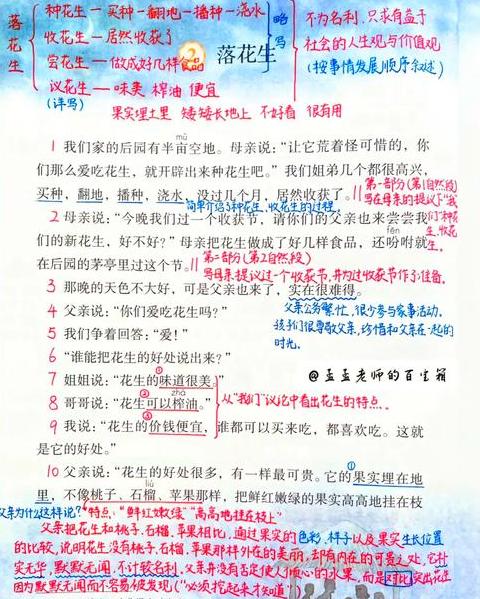 落花生
种花生—买种—翻地—播种—浇水
收花生—居然收获了
尝花生—做成好几样食品
议花生—味美 榨油 便宜
(详写)
略写
不为名利,只求有益于
社会的人生观与价值观
(按事情发展顺序叙述)
果实埋土里 矮矮长地上 不好看 很有用
2 落花生
mǔ
1 我们家的后园有半亩空地。母亲说:“让它荒着怪可惜的,你
们那么爱吃花生,就开辟出来种花生吧。”我们姐弟几个都很高兴,
买种,翻地,播种,浇水,没过几个月,居然收获了。||
第一部分(第1自然段)
写在母亲的提议下“我
们”种花
生,收花
生。
简单介绍了种花生、收花生的过程
2 母亲说:“今晚我们过一个收获节,请你们的父亲也来尝尝我
fēn
们的新花生,好不好?”母亲把花生做成了好几样食品,还吩咐就
在后园的茅亭里过这个节。||
第二部分(第2自然段)
写母亲提议过一个收获节,并为过收获节作了准备。
3 那晚的天色不大好,可是父亲也来了,实在很难得。
父亲公务繁忙,很少参与家事活动。
孩子们很尊敬父亲,珍惜和父亲在一起的
时光。
4 父亲说:“你们爱吃花生吗?”
5 我们争着回答:“爱!”
6 “谁能把花生的好处说出来?”
①
7 姐姐说:“花生的味道很美。”
② zhà
8 哥哥说:“花生可以榨油。”
③
9 我说:“花生的价钱便宜,谁都可以买来吃,都喜欢吃。这就
是它的好处。”
从“我们”议论中看出花生的特点。
@孟孟老师的百宝箱
①
10 父亲说:“花生的好处很多,有一样最可贵。它的果实埋在地
liú
里,不像桃子、石榴、苹果那样,把鲜红嫩绿的果实高高地挂在枝
父亲为什么这样说?“特点:“鲜红嫩绿”“高高地挂在枝上”
父亲把花生和桃子、石榴、苹果相比,通过果实的色彩、样子以及果实生长位置
的比较,说明花生没有桃子、石榴、苹果那样外在的美丽,却有内在的可贵之处,它朴
实无华,默默无闻,不计较名利。父亲并没有否定使人倾心的水果,而是对比突出花生
因为默默无闻而不容易被发现(“必须挖起来才知道”)